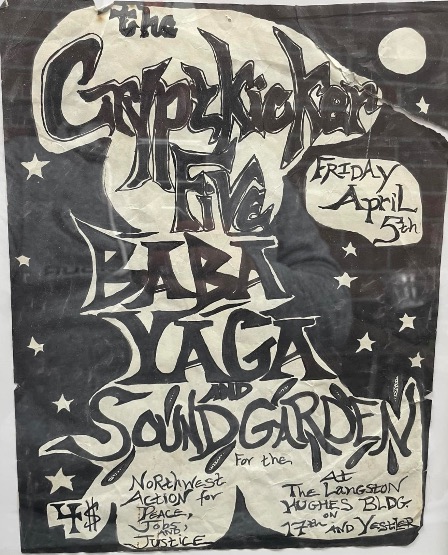 the
Cryptkicker
Five
FRIDAY
April
5th
BABA
YAGA
AND
SOUNDGARDEN
For the
NORTHWEST
ACTION for
PEACE,
JOBS,
AND
JUSTICE
4$
AT
The LANGSTON
HUGHES BLDG.
ON
17TH AND YESLER